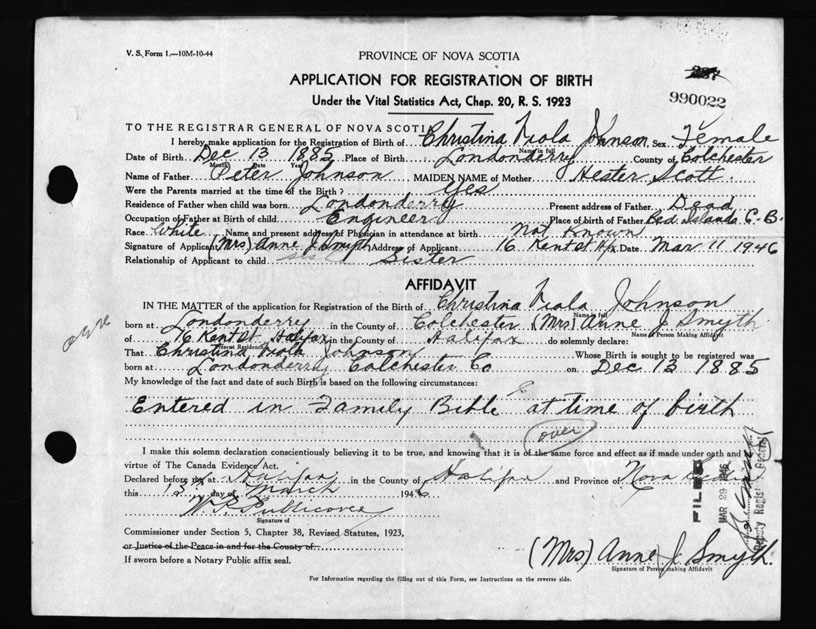 V. S. Form 1.—10M-10-44
PROVINCE OF NOVA SCOTIA
APPLICATION FOR REGISTRATION OF BIRTH
Under the Vital Statistics Act, Chap. 20, R. S. 1923
990022
TO THE REGISTRAR GENERAL OF NOVA SCOTIA
I hereby make application for the Registration of Birth of Christina Viola Johnson Sex Female
Name in full
Date of Birth Dec 13 1885 Place of Birth Londonderry County of Colchester
Month Date Year
Name of Father Peter Johnson MAIDEN NAME of Mother Hester Scott.
Were the Parents married at the time of the Birth? Yes
Residence of Father when child was born Londonderry Present address of Father Dead
Occupation of Father at Birth of child Engineer Place of birth of Father Red Islands C.B.
Race White Name and present address of Physician in attendance at birth Not Known
Signature of Applicant (Mrs) Anne J. Smyth Address of Applicant 16 Kent St Hfx Date Mar 11 1946
Relationship of Applicant to child Sister
AFFIDAVIT
IN THE MATTER of the application for Registration of the Birth of Christina Viola Johnson
Name in full
born at Londonderry in the County of Colchester (Mrs) Anne J Smyth
Name of Person Making Affidavit
of 16 Kent St Halifax in the County of Halifax do solemnly declare:
Present Residence
That Christina Viola Johnson Whose Birth is sought to be registered was
born at Londonderry Colchester Co on Dec 13 1885
My knowledge of the fact and date of such Birth is based on the following circumstances:
Entered in Family Bible at time of birth
over
I make this solemn declaration conscientiously believing it to be true, and knowing that it is of the same force and effect as if made under oath and by
virtue of The Canada Evidence Act.
Declared before me at Halifax in the County of Halifax and Province of Nova Scotia
this 13th day of March 1946
Signature of
Commissioner under Section 5, Chapter 38, Revised Statutes, 1923,
or Justice of the Peace in and for the County of
If sworn before a Notary Public affix seal.
(Mrs) Anne J. Smyth.
Signature of Person making Affidavit
For Information regarding the filling out of this Form, see Instructions on the reverse side.
FILED
MAR 29 1946
Deputy Registrar General